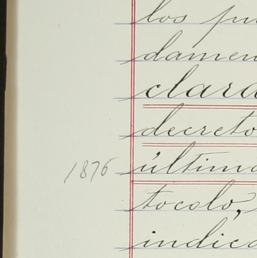 los pu
damen
clara
decreto
1876 última
tocolo,
indica